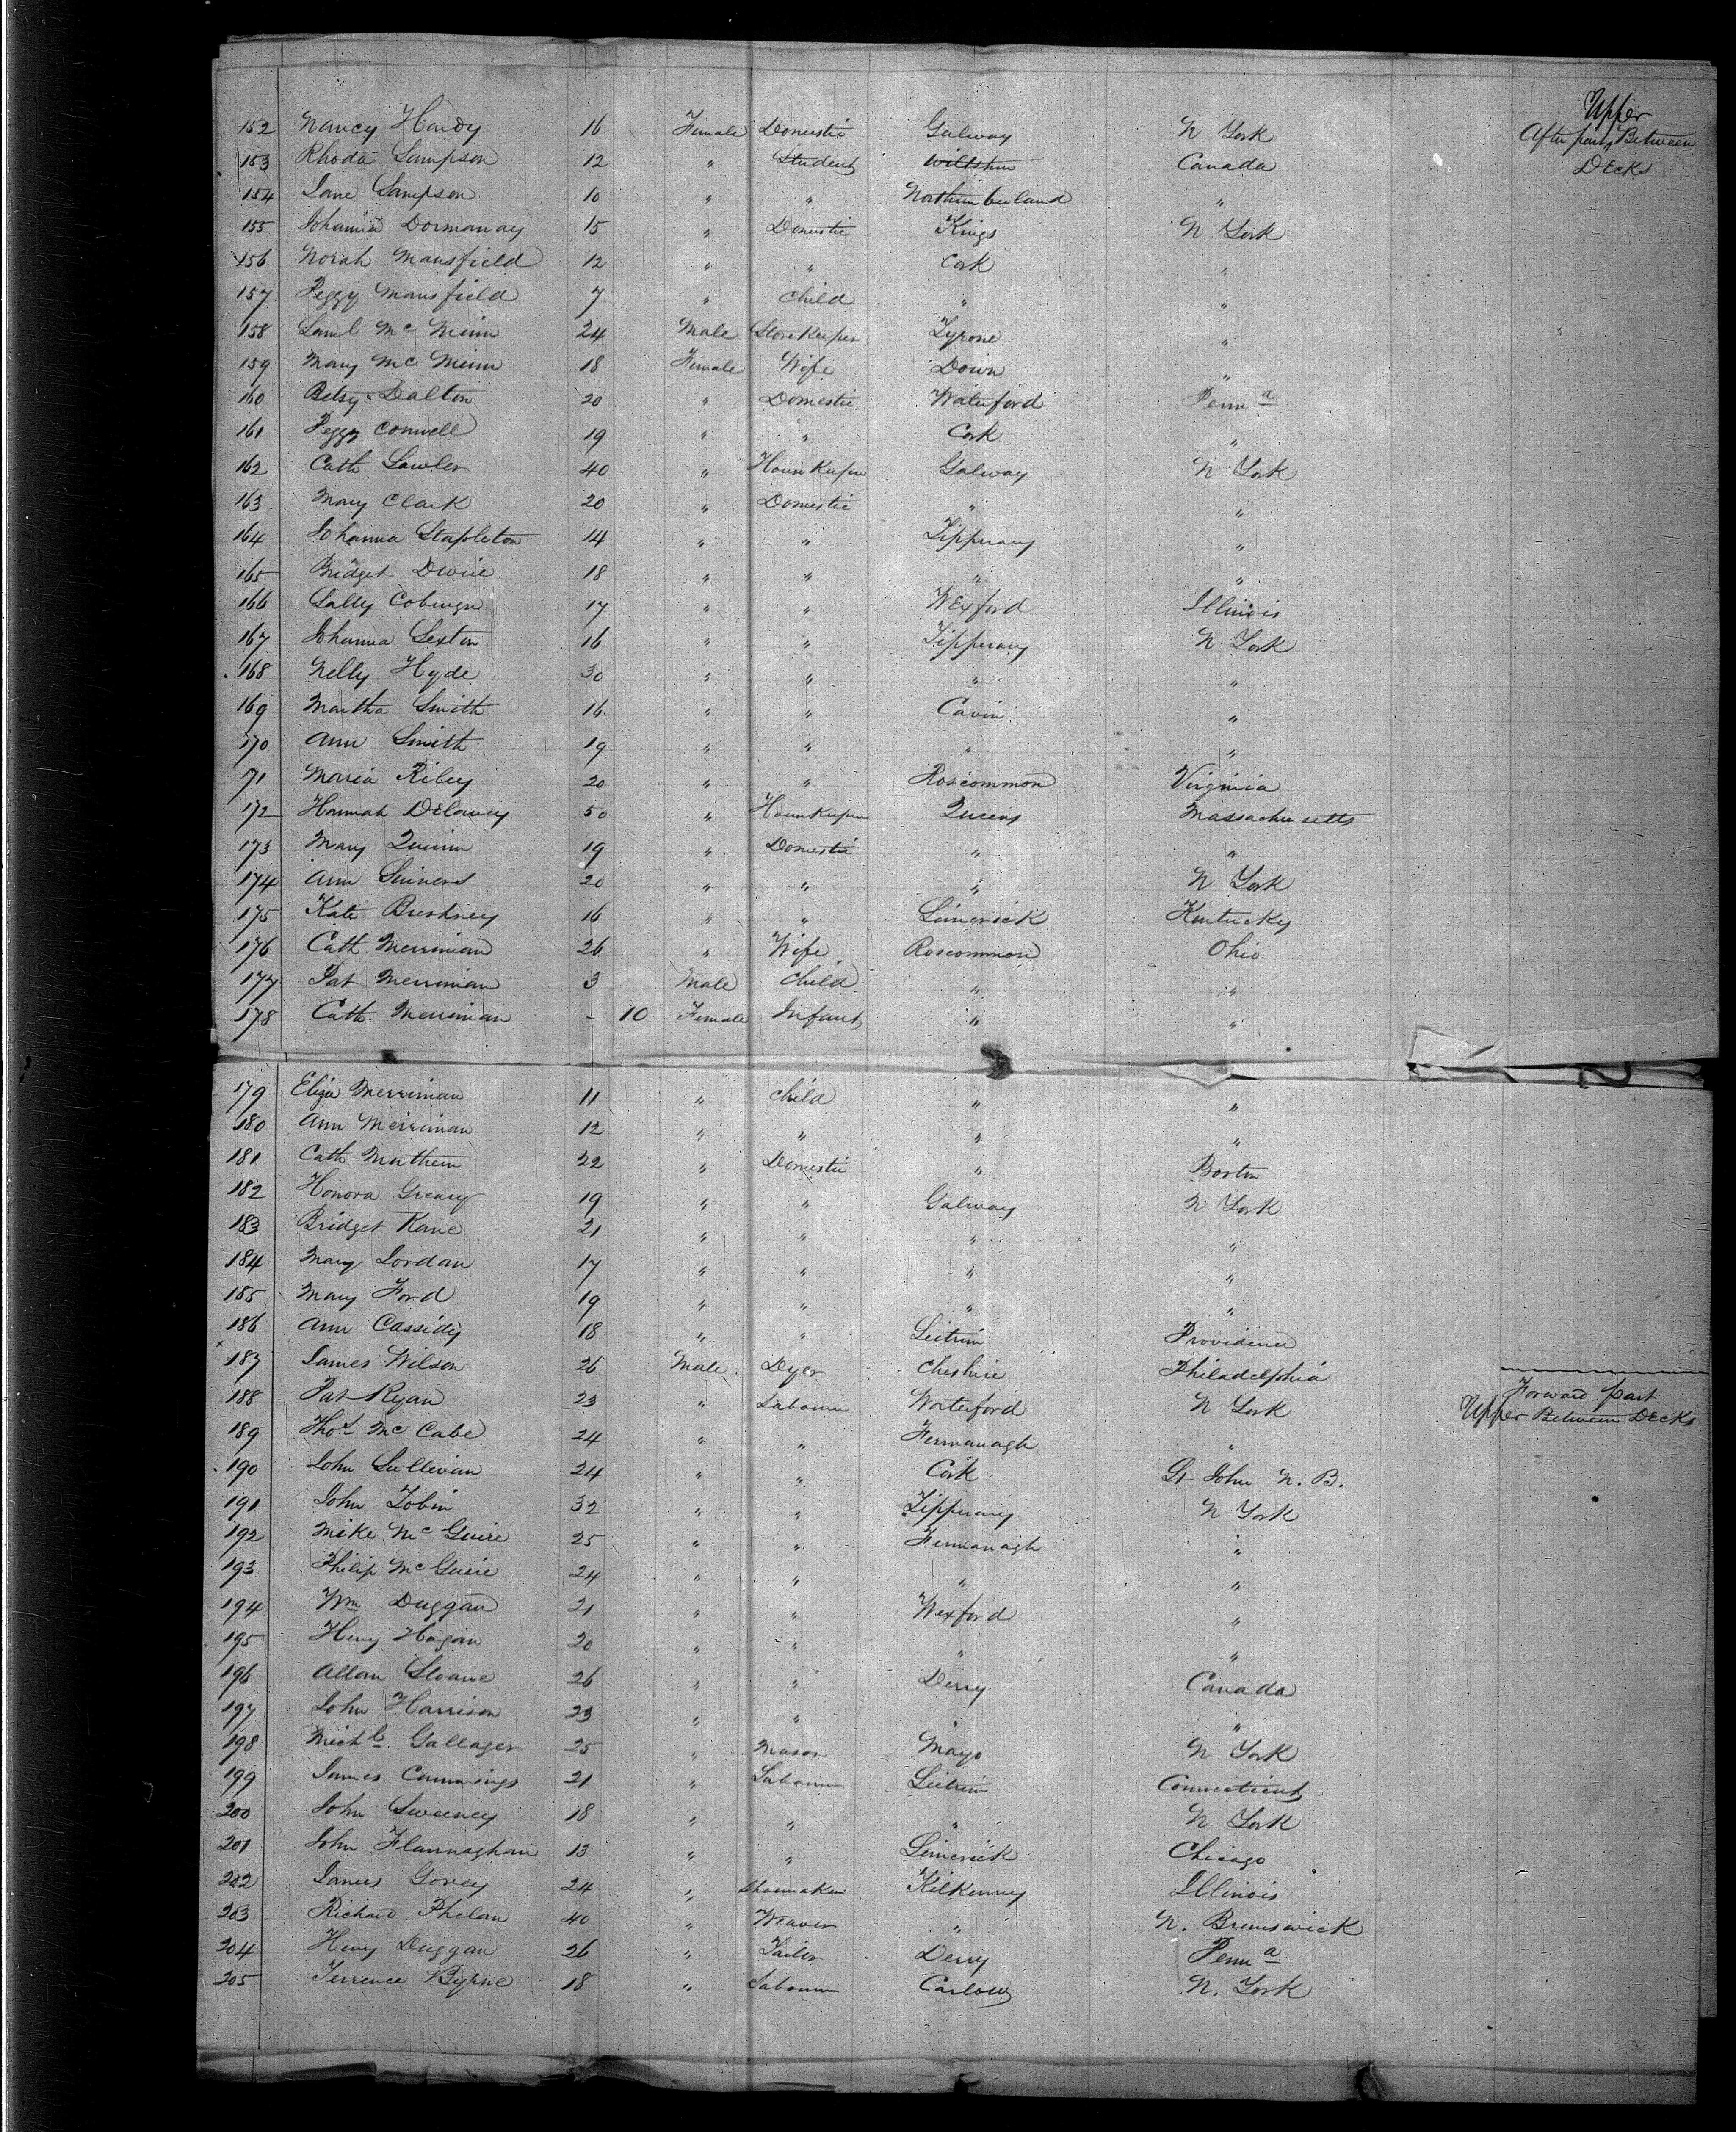 152 Nancy Hardy 16 Female Domestic Galway N York Upper After part Between
153 Rhoda Sampson 12 " Student Wiltshire Canada Decks
154 Jane Sampson 10 " " Northumberland "
155 Johanna Dormanay 15 " Domestic Kings N York
156 Norah Mansfield 12 " " Cork "
157 Peggy Mansfield 7 " Child " "
158 Saml Mc Minn 24 Male Store Keeper Tyrone "
159 Mary Mc Minn 18 Female Wife Down "
160 Betsy Dalton 20 " Domestic Waterford Penna
161 Peggy Conwell 19 " " Cork "
162 Cath Lawler 40 " House Keeper Galway N York
163 Mary Clark 20 " Domestic " "
164 Johanna Stapleton 14 " " Tipperary "
165 Bridget Dwire 18 " " " "
166 Sally 17 " " Wexford Illinois
167 Johanna Sexton 16 " " Tipperary N York
168 Nelly Hyde 30 " " " "
169 Martha Smith 16 " " Cavin "
170 Ann Smith 19 " " " "
171 Maria Riley 20 " " Roscommon Virginia
172 Hannah Delaney 50 " House Keeper Queens Massachusetts
173 Mary Quinn 19 " Domestic " "
174 Ann 20 " " " N York
175 Kate Breshney 16 " " Limerick Kentucky
176 Cath Merriman 26 " Wife Roscommon Ohio
177 Pat Merriman 3 Male Child " "
178 Cath. Merriman - 10 Female Infant " "
179 Eliza Merriman 11 " Child " "
180 Ann Merriman 12 " " " "
181 Cath 22 " Domestic " Boston
182 Honora Greany 19 " " Galway N York
183 Bridget Kane 21 " " " "
184 Mary Jordan 17 " " " "
185 Mary Ford 19 " " " "
186 Ann Cassidy 18 " " Leitrim Providence
187 James Wilson 26 Male Dyer Cheshire Philadelphia
188 Pat Ryan 23 " Labourer Waterford N York Forward part
189 Thos Mc Cabe 24 " " Fermanagh " Upper Between Decks
190 John Sullivan 24 " " Cork St John N. B.
191 John Tobin 32 " " Tipperary N York
192 Mike Mc Guire 25 " " Fermanagh "
193 Philip Mc Guire 24 " " " "
194 Wm Duggan 21 " " Wexford "
195 Henry Hogan 20 " " " "
196 Allan Sloane 26 " " Derry Canada
197 John Harrison 23 " " " "
198 Michl. Gallager 25 " Mason Mayo N York
199 James Cummings 21 " Labourer Leitrim Connecticut
200 John Sweeney 18 " " " N York
201 John Flannaghan 13 " " Limerick Chicago
202 James Gorey 24 " Shoemaker Kilkenny Illinois
203 Richard Phelan 40 " Weaver " N. Brunswick
204 Henry Duggan 26 " Tailor Derry Penna
205 Terrence Byrne 18 " Labourer Carlow N. York